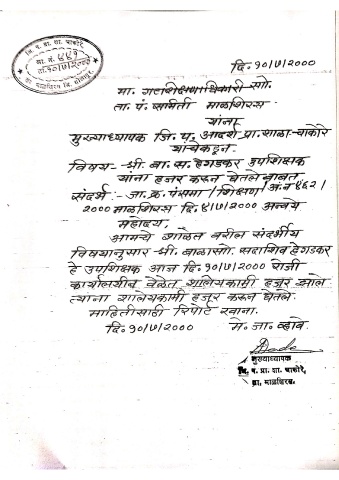 जि. प. प्रा. शा. चाकोरे,
जा. नं. ४४१
ता. १०/७/२०००
ता. माळशिरस जि. सोलापूर
दि. १०/७/२०००
मा. गटशिक्षणाधिकारी सो.
ता. पं. समिती माळशिरस
यांना
मुख्याध्यापक जि. प. आदर्श प्रा. शाळा- चाकोरे
यांचेकडून.
विषय - श्री. बा. स. हेगडकर उपशिक्षक
यांना हजर करून घेतले बाबत
संदर्भ:- जा. क्र. पंसमा / शिक्षण/ अ.न ४६२/
२००० माळशिरस दि. ४/७/२००० अन्वये
महोदय,
आमचे शाळेत वरील संदर्भीय
विषयानुसार श्री. बाळासो. सदाशिव हेगडकर
हे उपशिक्षक आज दि. १०/७/२००० रोजी
कार्यालयीन वेळेत शालेयकामी हजर झाले
त्यांना शालेयकामी हजर करून घेतले.
माहितीसाठी रिपोर्ट रवाना.
दि. १०/७/२००० मे. जा. व्हावे.
मुख्याध्यापक
जि. प. प्रा. शा. चाकोरे,
ता. माळशिरस.